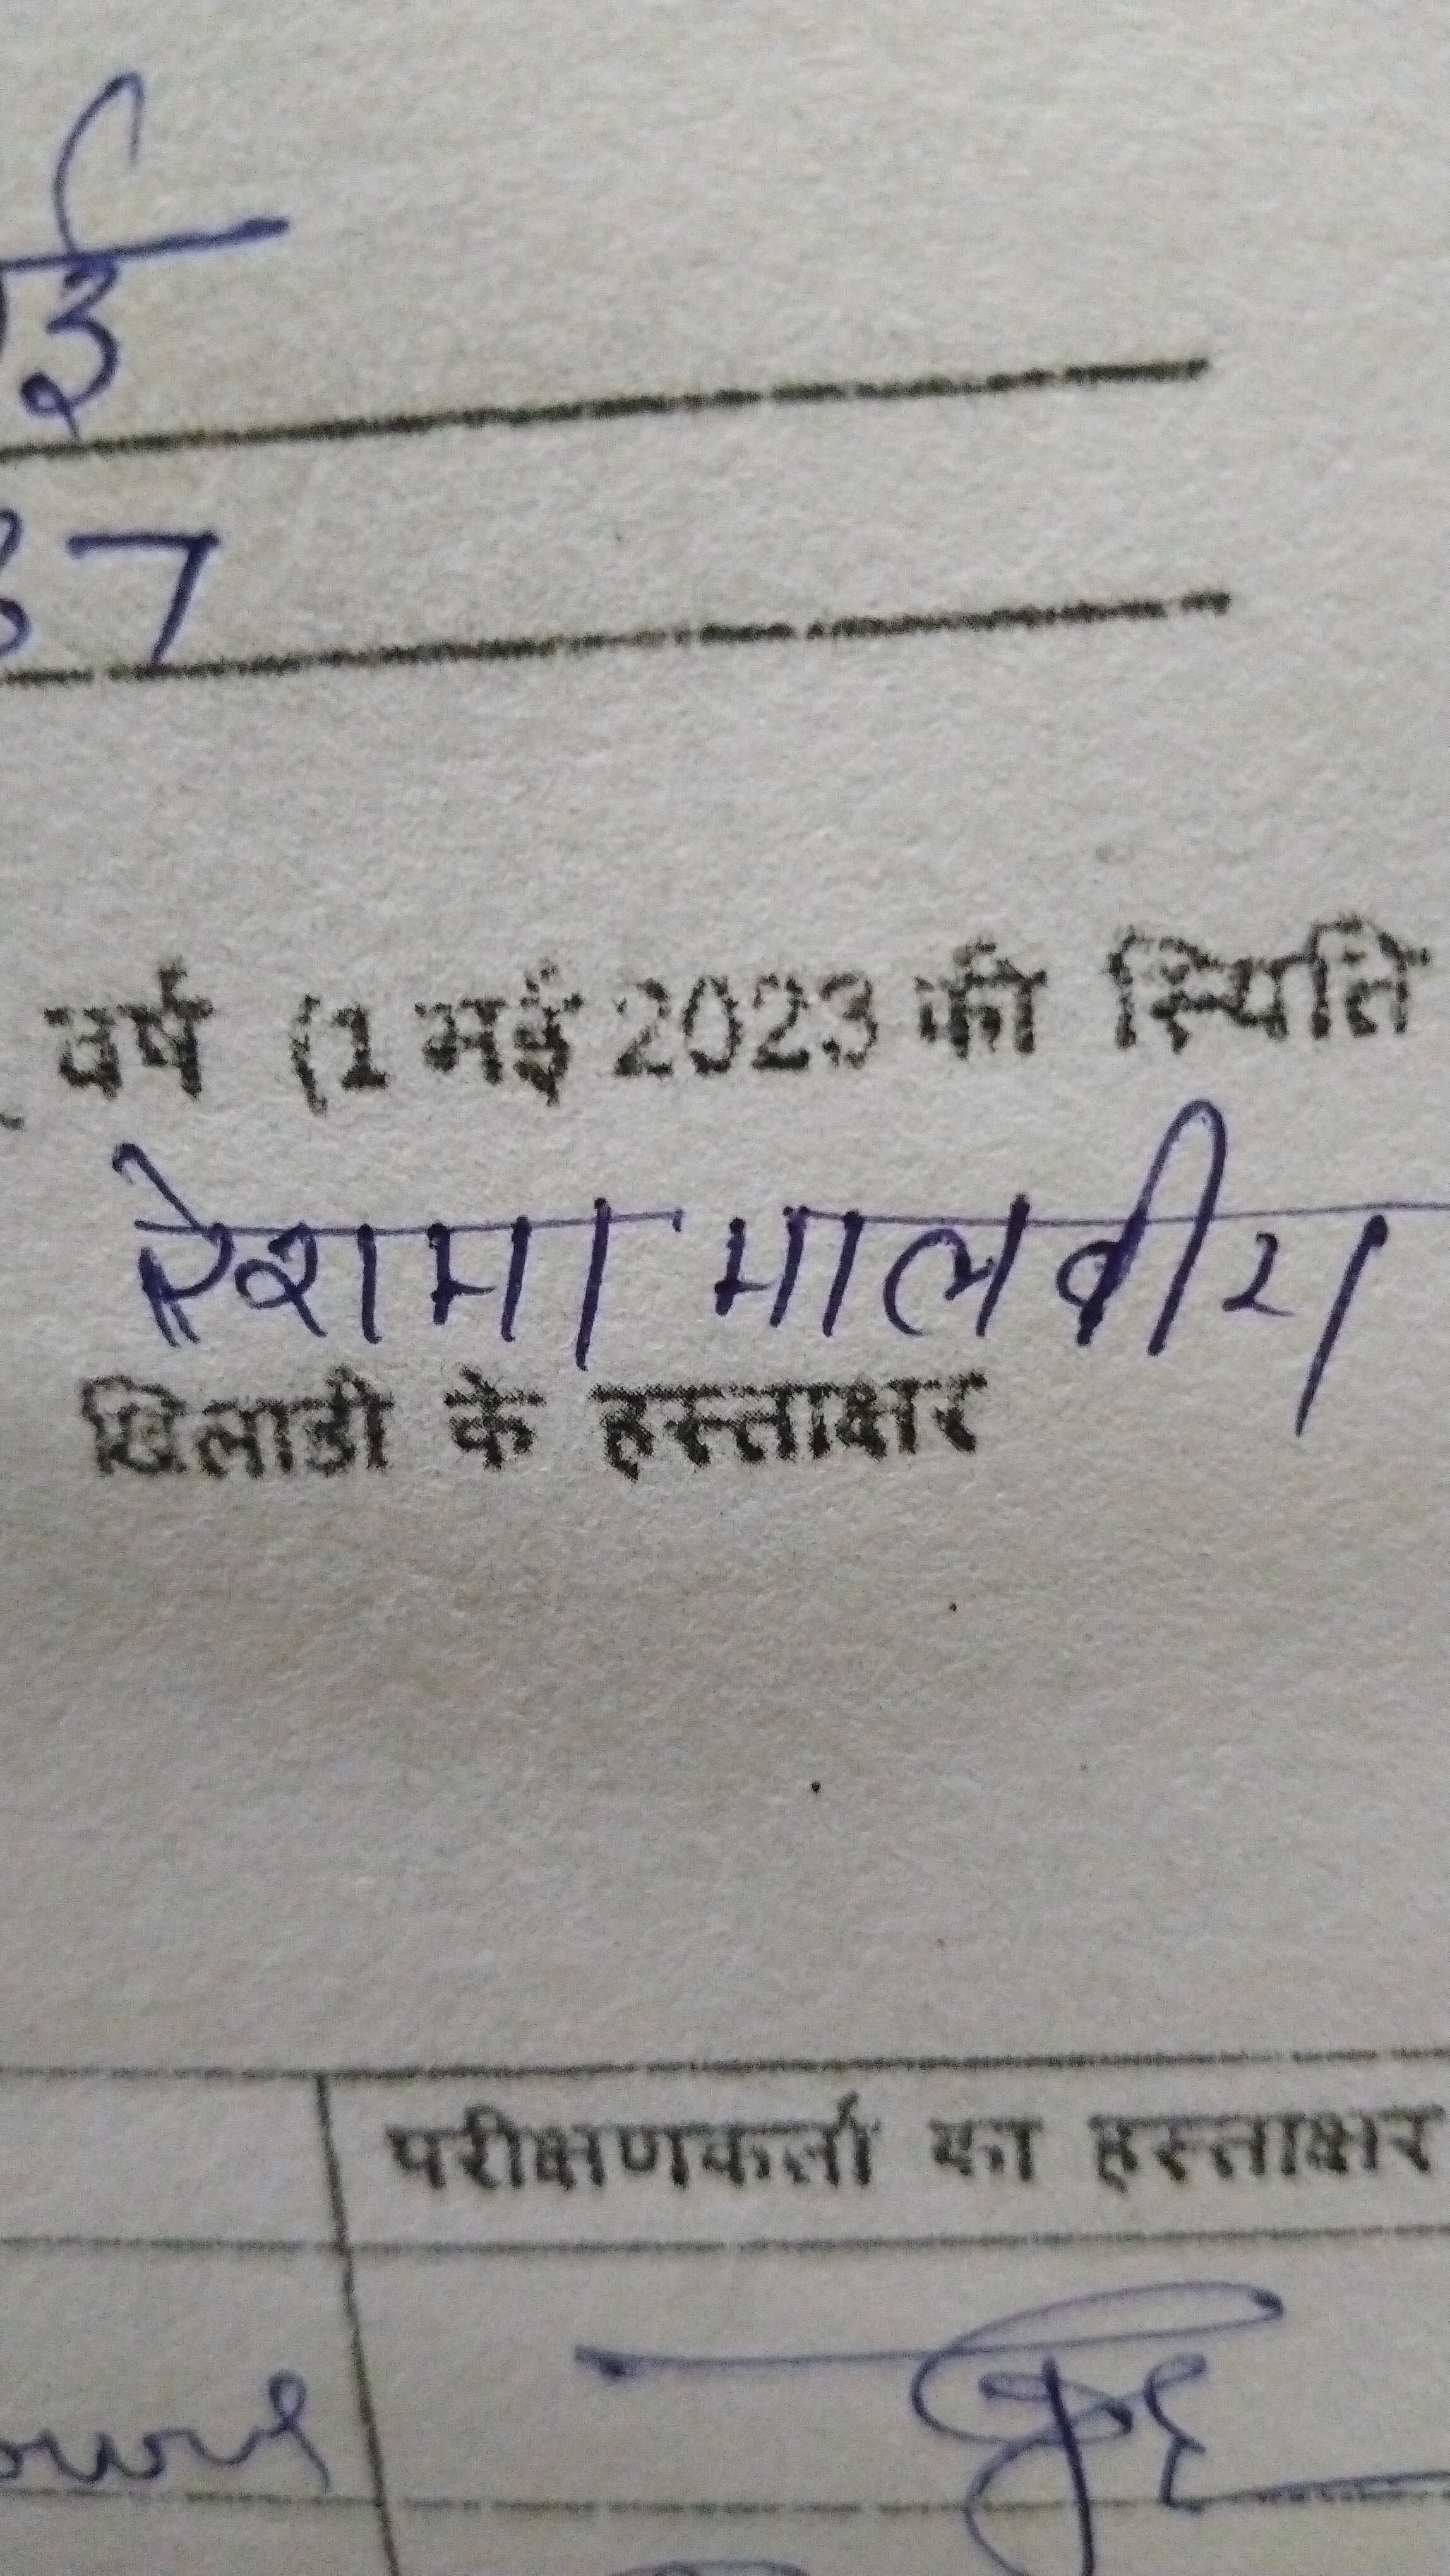 ई
37
वर्ष (1 मई 2023 की स्थिति
रेशमा मालवीय
खिलाडी के हस्ताक्षर
परीक्षणकर्ता का हस्ताक्षर